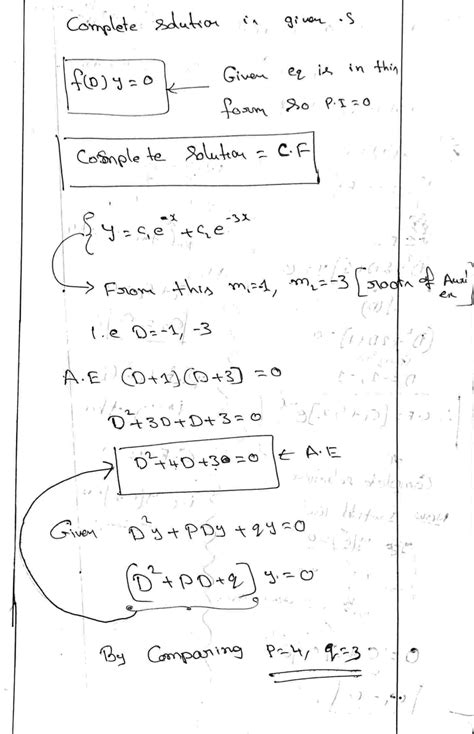 Complete solution is given .s
f(D) y = 0 ← Given eq is in this
form so P.I = 0
Complete Solution = C.F
y = c₁e^-x + c₂e^-3x
→ From this m₁=-1, m₂=-3 [roots of Auxi
en]
i.e D=-1, -3
A.E (D+1)(D+3) = 0
D²+3D+D+3=0
D²+4D+3=0 ← A.E
Given D²y + PDy + qy = 0
[D² + PD + q] y = 0
By Comparing P=4, q=3